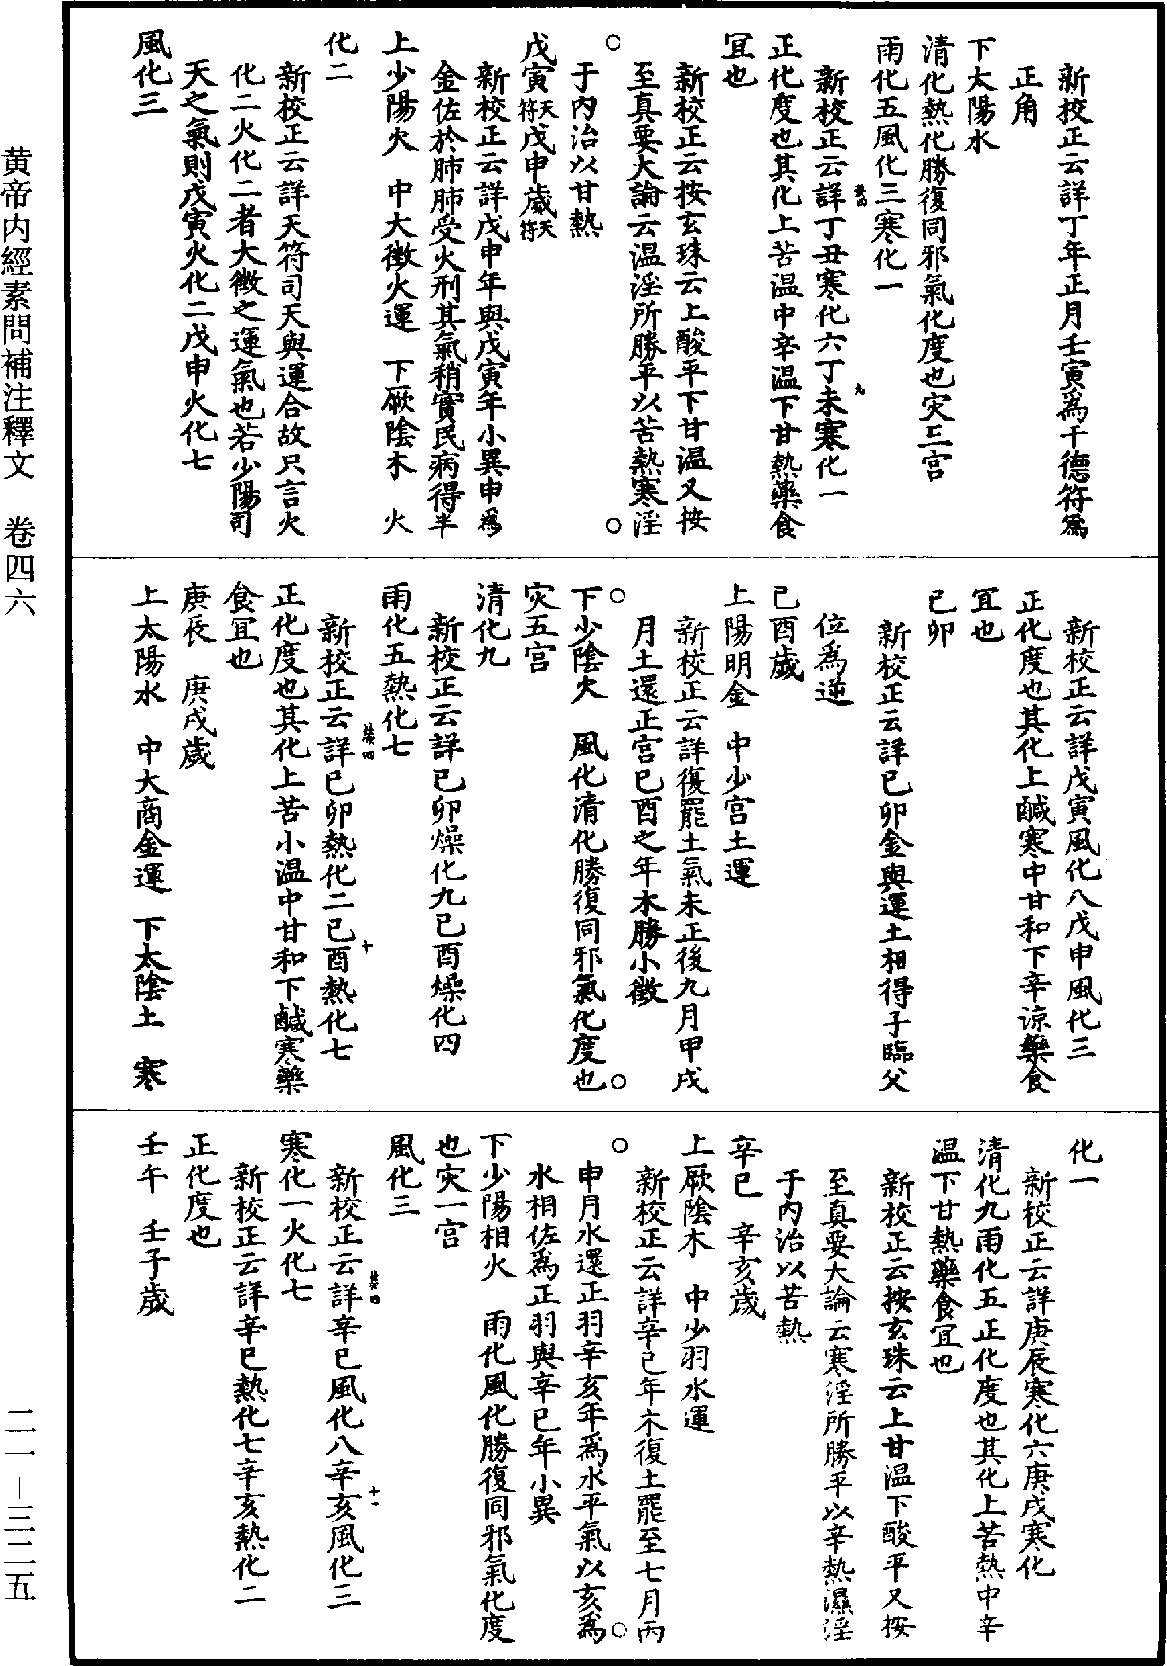 新校正云詳丁年正月壬寅為干德符為
正角
下太陽水
清化熱化勝復同邪氣化度也灾三宫
雨化五風化三寒化一
新校正云詳丁丑寒化六丁未寒化一
正化度也其化上苦温中辛温下甘熱藥食
宜也
新校正云按玄珠云上酸平下甘温又按
至真要大論云温淫所勝平以苦熱寒淫
于内治以甘熱
戊寅天符戊申歲天符
新校正云詳戊申年與戊寅年小異申為
金佐於肺肺受火刑其氣稍實民病得半
上少陽火 中大徵火運 下厥陰木 火
化二
新校正云詳天符司天與運合故只言火
化二火化二者大徵之運氣也若少陽司
天之氣則戊寅火化二戊申火化七
風化三
新校正云詳戊寅風化八戊申風化三
正化度也其化上鹹寒中甘和下辛涼藥食
宜也
己卯
新校正云詳己卯金與運土相得子臨父
位為逆
己酉歲
上陽明金 中少宫土運
新校正云詳復罷土氣未正後九月甲戌
月土還正宫己酉之年木勝小徵
下少陰火 風化清化勝復同邪氣化度也
灾五宫
清化九
新校正云詳己卯燥化九己酉燥化四
雨化五熱化七
新校正云詳己卯熱化二己酉熱化七
正化度也其化上苦小温中甘和下鹹寒藥
食宜也
庚辰 庚戌歲
上太陽水 中大商金運 下太陰土 寒
化一
新校正云詳庚辰寒化六庚戌寒化
清化九雨化五正化度也其化上苦熱中辛
温下甘熱藥食宜也
新校正云按玄珠云上甘温下酸平又按
至真要大論云寒淫所勝平以辛熱濕淫
于内治以苦熱
辛巳 辛亥歲
上厥陰木 中少羽水運
新校正云詳辛巳年木復土罷至七月丙
申月水還正羽辛亥年為水平氣以亥為
水相佐為正羽與辛巳年小異
下少陽相火 雨化風化勝復同邪氣化度
也灾一宫
風化三
新校正云詳辛巳風化八辛亥風化三
寒化一火化七
新校正云詳辛巳熱化七辛亥熱化二
正化度也
壬午 壬子歲
黄帝内經素問補注釋文 卷四六
二一—三二五